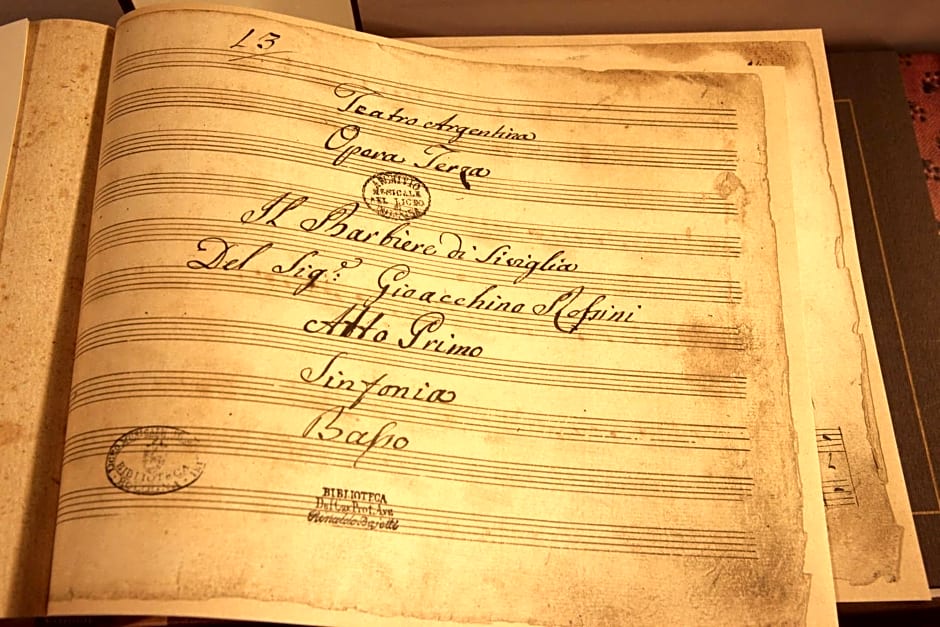 13
Teatro Argentina
Opera Terza
ARCHIVIO
MUSICALE
DEL LICEO
Il Barbiere di Siviglia
Del Sigr. Gioacchino Rossini
Atto Primo
Sinfonia
Basso
BIBLIOTECA
BIBLIOTECA
Del Cav. Prof. Avv.